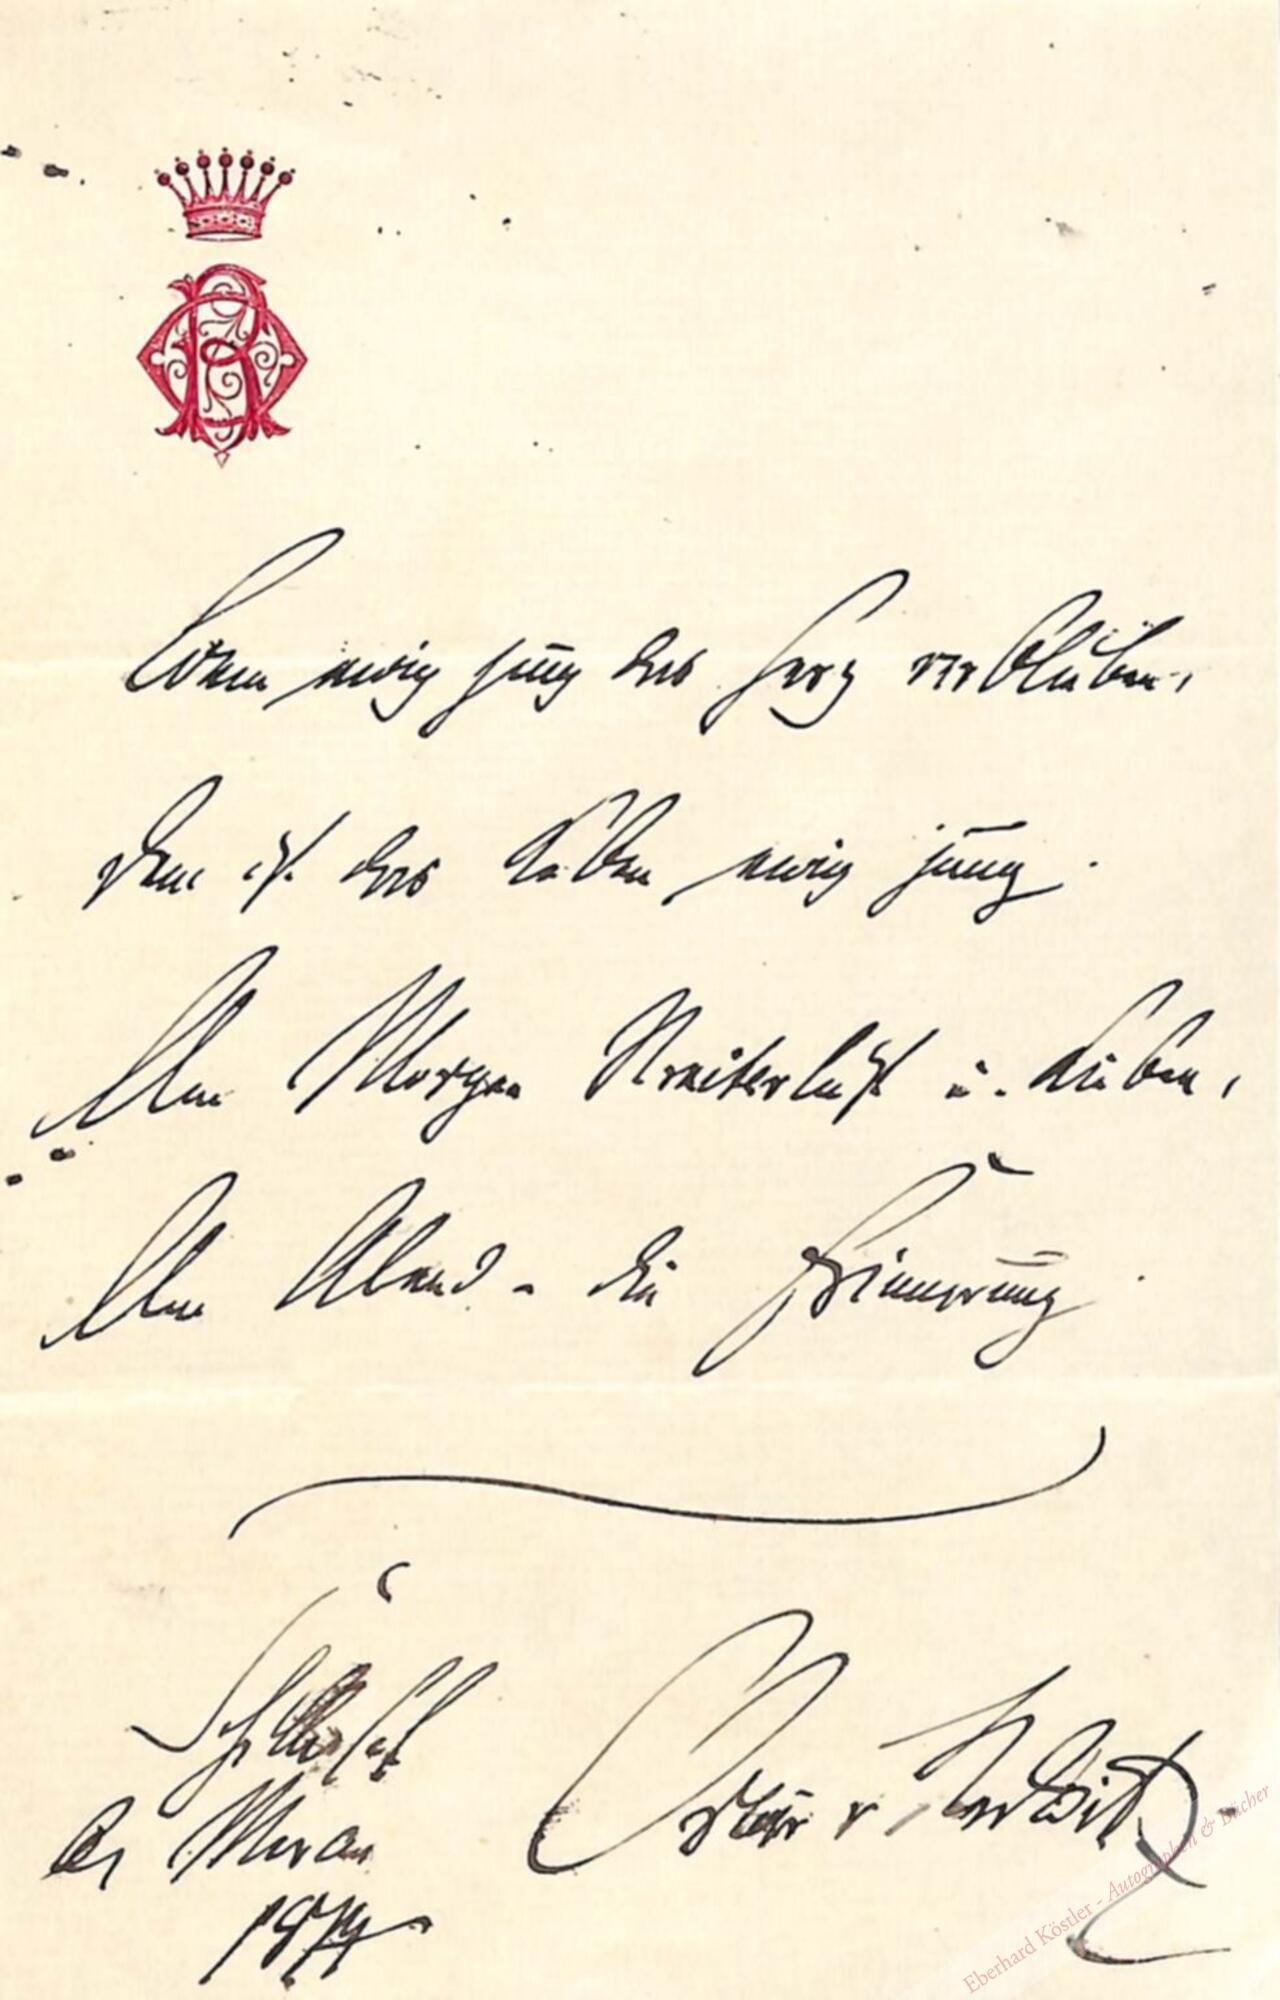 Wem ewig jung das Herz verblieben,
Dem ist das Leben ewig jung.
Am Morgen Streiterlust u. Lieben,
Am Abend - die Erinnerung.
bei Meran
Oskar v Redwitz
Eberhard Köstler - Autographen & Bücher